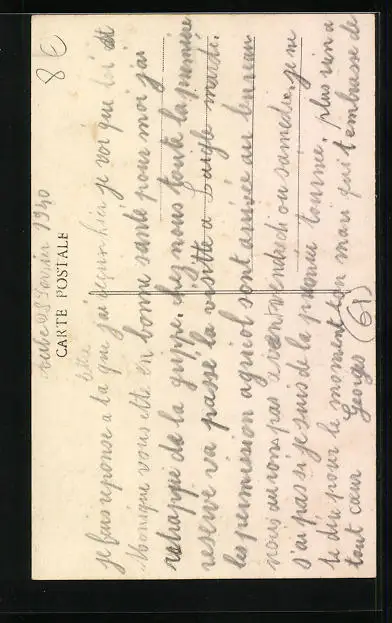 8 €
Février 1940
CARTE POSTALE
lettre
je fais reponse a ta que j'ai reçu hier je voi que toi et
Monique vous ette en bonne santé pour moi j'ai
rechappé de la grippe. chez nous toute la premiere
reserve va passé la visitte a Laigle mardi.
les permission agricol sont arrivée au bureau
nous aurons pas avant vendredi ou samedi. je ne
s'ai pas si je suis de la premiere tournée, plus rien a
te dire pour le moment ton mari qui t'embrasse de
tout cœur Georges
61